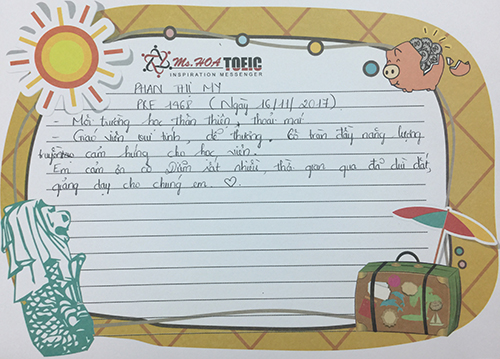 Ms.HOA TOEIC
INSPIRATION MESSENGER
PHAN THỊ MY
PRE 1968 (Ngày 16/11/2017)
- Môi trường học thân thiện, thoải mái
- Giáo viên vui tính, dễ thương. Cô tràn đầy năng lượng
truyền cảm hứng cho học viên.
Em cảm ơn cô Diễm rất nhiều, thời gian qua đã dìu dắt,
giảng dạy cho chúng em ♡.